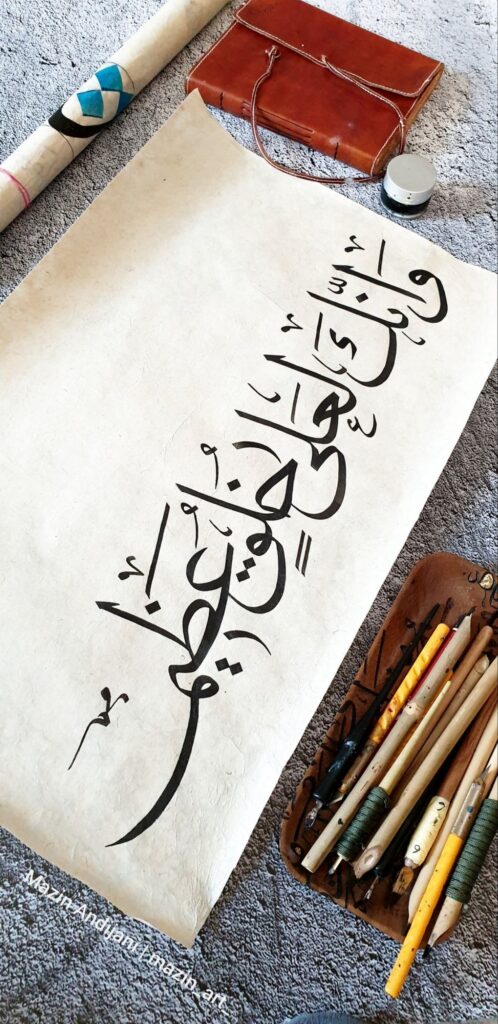 وَإِنَّكَ لَعَلَىٰ خُلُقٍ عَظِيمٍ
Mazin Andijani | mazin_art_